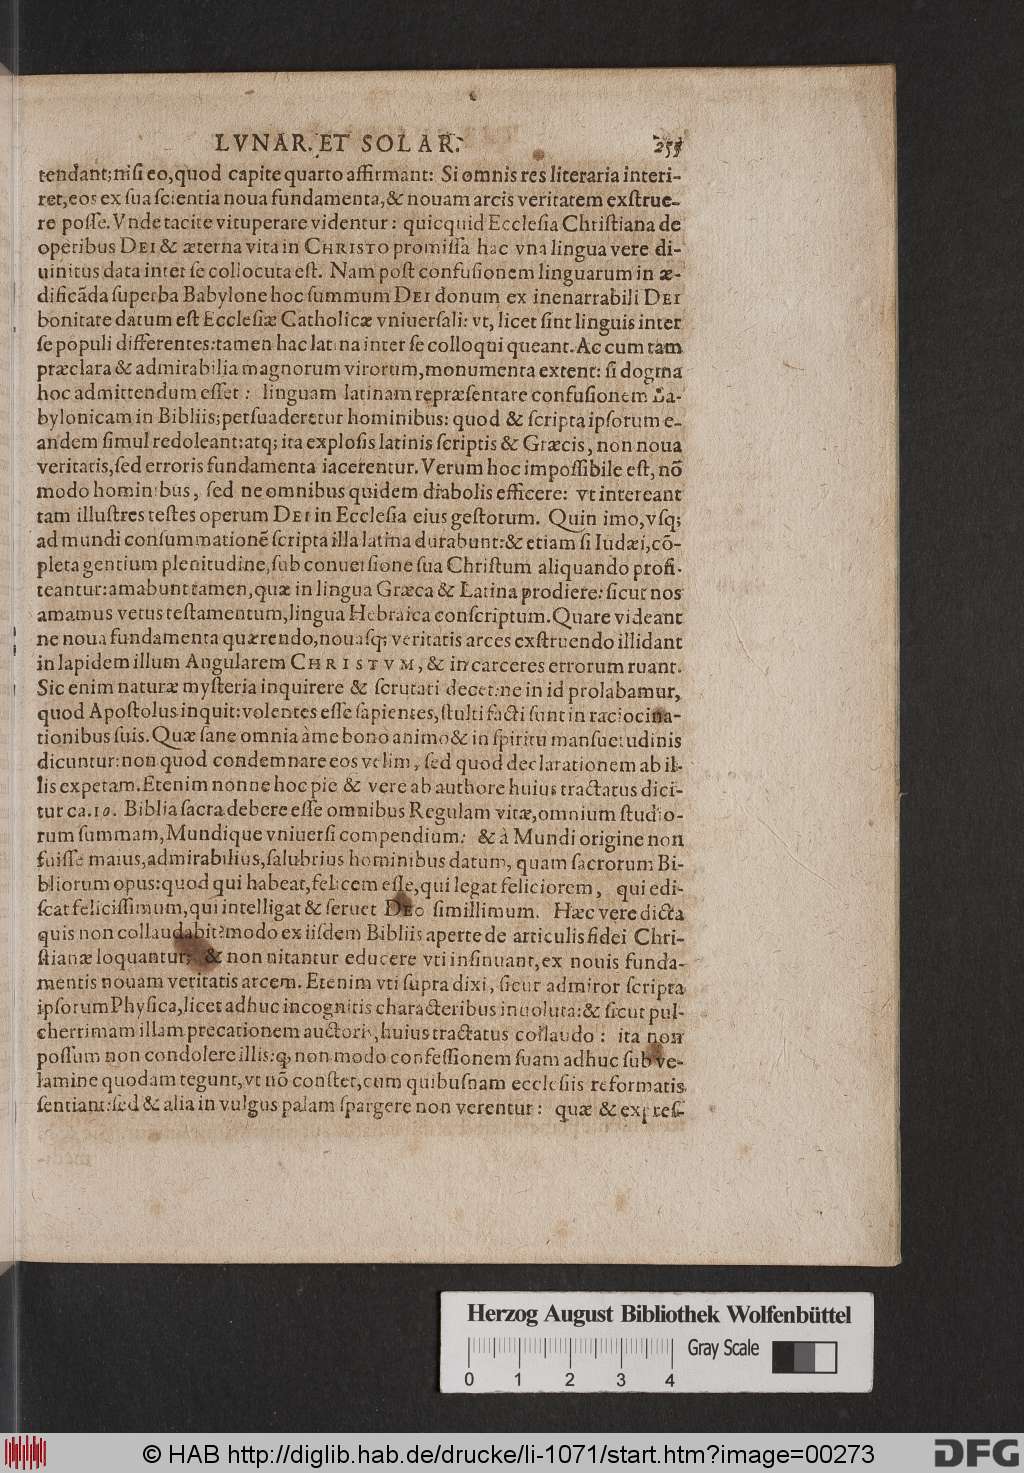 LVNAR. ET SOLAR. 255
tendant; niſi eo, quod capite quarto affirmant: Si omnis res literaria interi-
ret, eos ex ſua ſcientia noua fundamenta, & nouam arcis veritatem exſtrue-
re poſſe. Vnde tacite vituperare videntur: quicquid Eccleſia Chriſtiana de
operibus DEI & æterna vita in CHRISTO promiſſa hac vna lingua vere di-
uinitus data inter ſe collocuta eſt. Nam poſt confuſionem linguarum in æ-
dificāda ſuperba Babylone hoc ſummum DEI donum ex inenarrabili DEI
bonitate datum eſt Eccleſiæ Catholicæ vniuerſali: vt, licet ſint linguis inter
ſe populi differentes: tamen hac latina inter ſe colloqui queant. Ac cum tam
præclara & admirabilia magnorum virorum, monumenta extent: ſi dogma
hoc admittendum eſſet: linguam latinam repræſentare confuſionem Ba-
bylonicam in Bibliis; perſuaderetur hominibus: quod & ſcripta ipſorum e-
andem ſimul redoleant: atq; ita exploſis latinis ſcriptis & Græcis, non noua
veritatis, ſed erroris fundamenta iacerentur. Verum hoc impoſſibile eſt, nō
modo hominibus, ſed ne omnibus quidem diabolis efficere: vt intereant
tam illuſtres teſtes operum DEI in Eccleſia eius geſtorum. Quin imo, vſq;
ad mundi conſummationē ſcripta illa latina durabunt: & etiam ſi Iudæi, cō-
pleta gentium plenitudine, ſub conuerſione ſua Chriſtum aliquando profi-
teantur: amabunt tamen, quæ in lingua Græca & Latina prodiere: ſicut nos
amamus vetus teſtamentum, lingua Hebraica conſcriptum. Quare videant
ne noua fundamenta quærendo, nouaſq; veritatis arces exſtruendo illidant
in lapidem illum Angularem CHRISTVM, & in carceres errorum ruant.
Sic enim naturæ myſteria inquirere & ſcrutari decet: ne in id prolabamur,
quod Apoſtolus inquit: volentes eſſe ſapientes, ſtulti facti ſunt in raciocina-
tionibus ſuis. Quæ ſane omnia à me bono animo & in ſpiritu manſuetudinis
dicuntur: non quod condemnare eos velim, ſed quod declarationem ab il-
lis expetam. Etenim nonne hoc pie & vere ab authore huius tractatus dici-
tur ca. 10. Biblia ſacra debere eſſe omnibus Regulam vitæ, omnium ſtudio-
rum ſummam, Mundique vniuerſi compendium: & à Mundi origine non
fuiſſe maius, admirabilius, ſalubrius hominibus datum, quam ſacrorum Bi-
bliorum opus: quod qui habeat, felicem eſſe, qui legat feliciorem, qui edi-
ſcat feliciſſimum, qui intelligat & ſeruet DEO ſimillimum. Hæc vere dicta
quis non collaudabit? modo ex iiſdem Bibliis aperte de articulis fidei Chri-
ſtianæ loquantur; & non nitantur educere vti inſinuant, ex nouis funda-
mentis nouam veritatis arcem. Etenim vti ſupra dixi, ſicut admiror ſcripta
ipſorum Phyſica, licet adhuc incognitis characteribus inuoluta: & ſicut pul-
cherrimam illam precationem auctoris, huius tractatus collaudo: ita non
poſſum non condolere illis: q; non modo confeſſionem ſuam adhuc ſub ve-
lamine quodam tegunt, vt nō conſtet, cum quibuſnam eccleſiis reformatis
ſentiant: ſed & alia in vulgus palam ſpargere non verentur: quæ & expreſ-
Herzog August Bibliothek Wolfenbüttel
Gray Scale
0 1 2 3 4
© HAB http://diglib.hab.de/drucke/li-1071/start.htm?image=00273
DFG